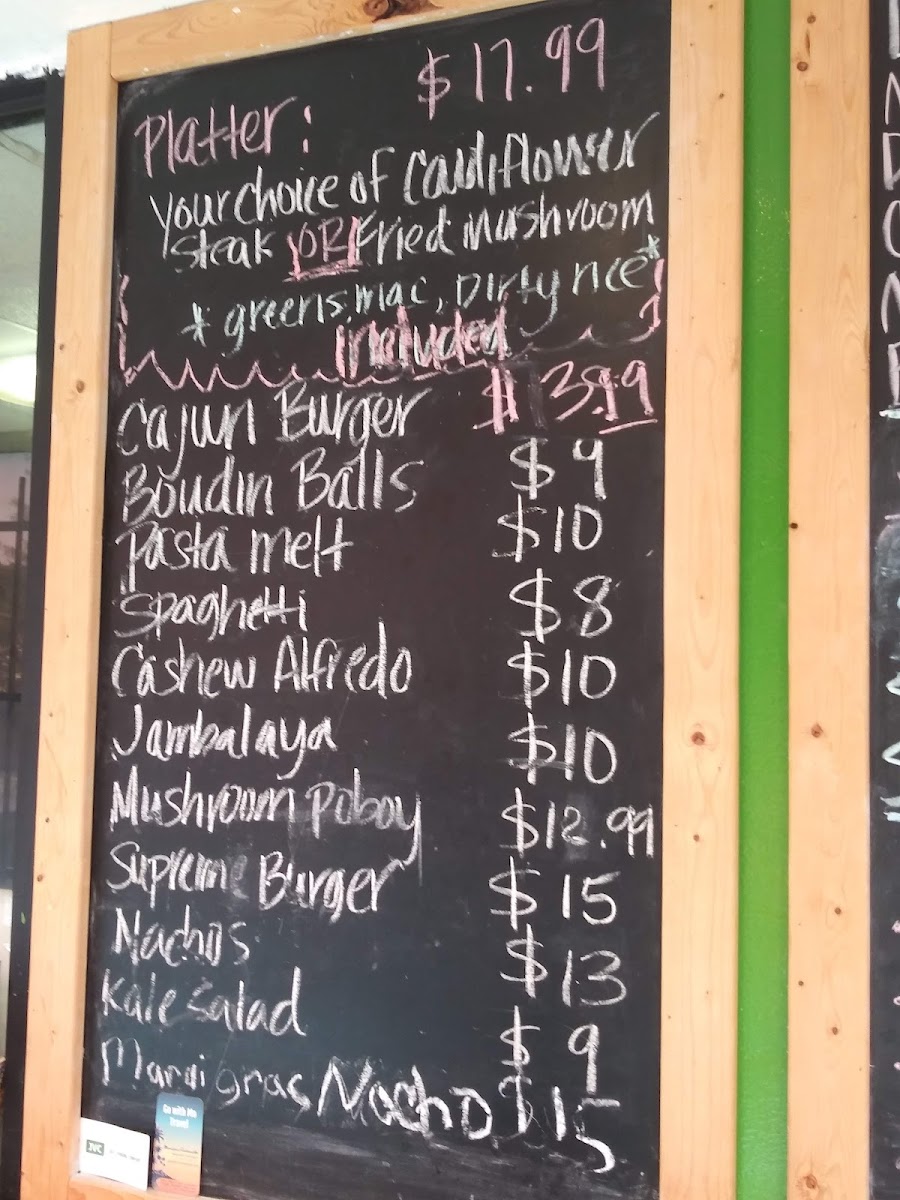 $17.99
Platter:
your choice of cauliflower
steak OR Fried mushroom
* greens, mac, Dirty rice*
included
Cajun Burger $13.99
Boudin Balls $9
Pasta melt $10
Spaghetti $8
Cashew Alfredo $10
Jambalaya $10
Mushroom poboy $12.99
Supreme Burger $15
Nachos $13
Kale Salad $9
Mardi gras Nacho $15
Go with Me
Travel
JVC